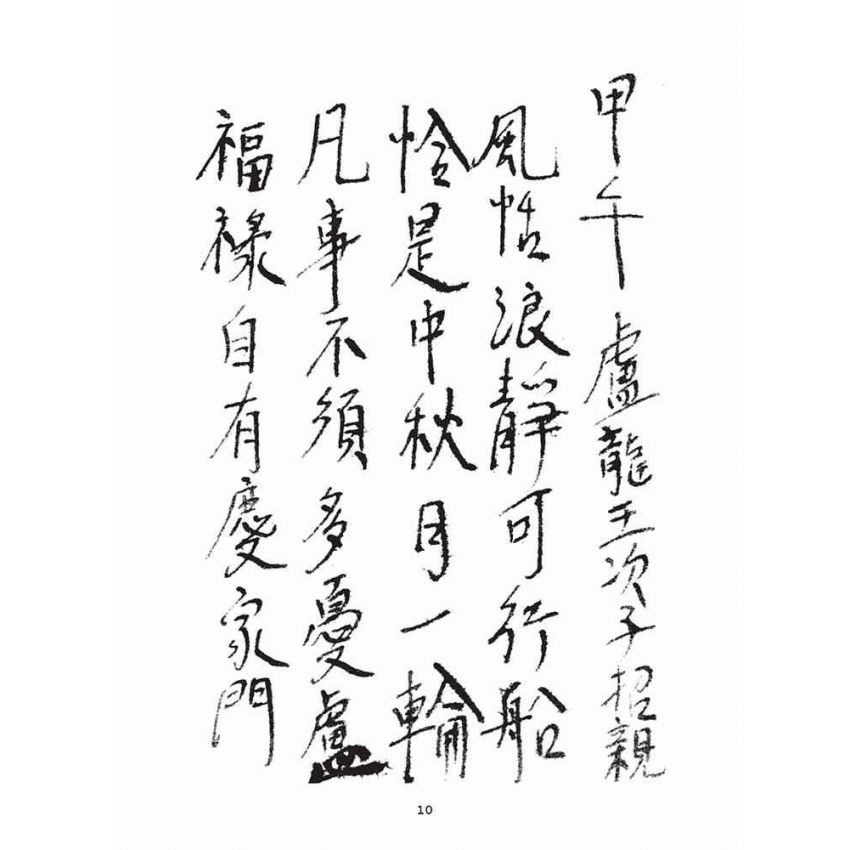 甲午 盧龍王次子招親
風恬浪靜可行船
恰是中秋月一輪
凡事不須多憂盧
福祿自有慶家門
10